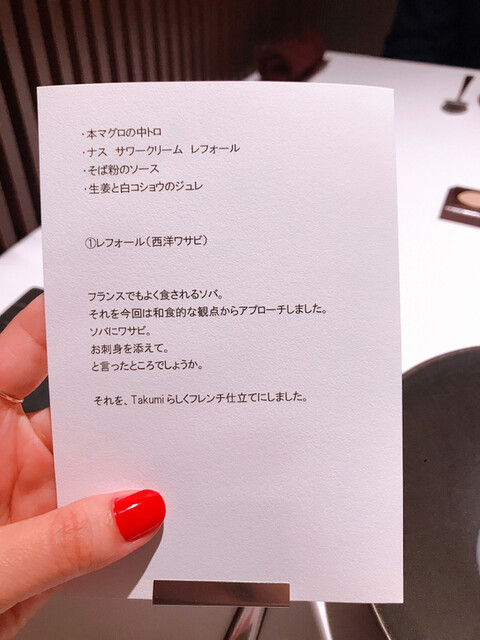 ・本マグロの中トロ
・ナス　サワークリーム　レフォール
・そば粉のソース
・生姜と白コショウのジュレ
①レフォール（西洋ワサビ）
フランスでもよく食されるソバ。
それを今回は和食的な観点からアプローチしました。
ソバにワサビ。
お刺身を添えて。
と言ったところでしょうか。
それを、Takumiらしくフレンチ仕立てにしました。